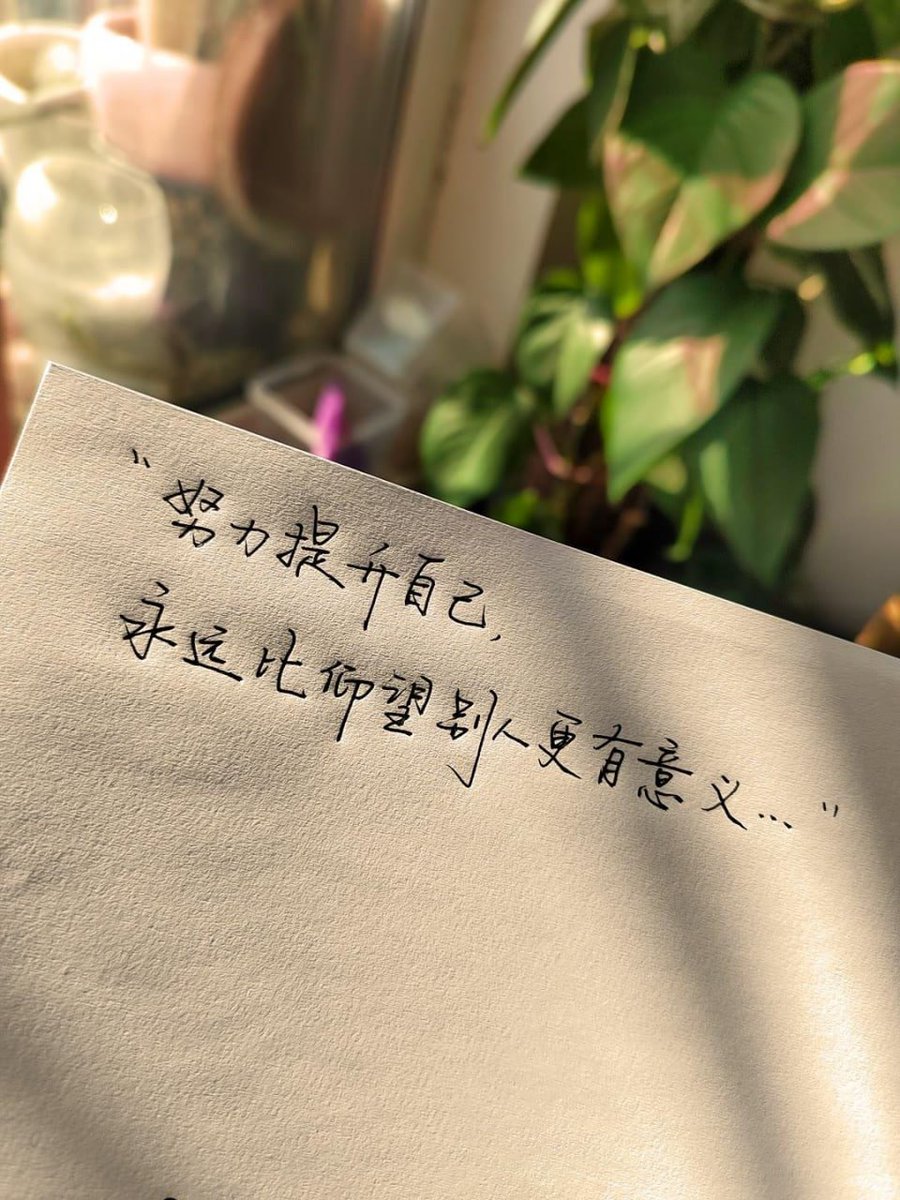 “努力提升自己,
永远比仰望别人更有意义...”